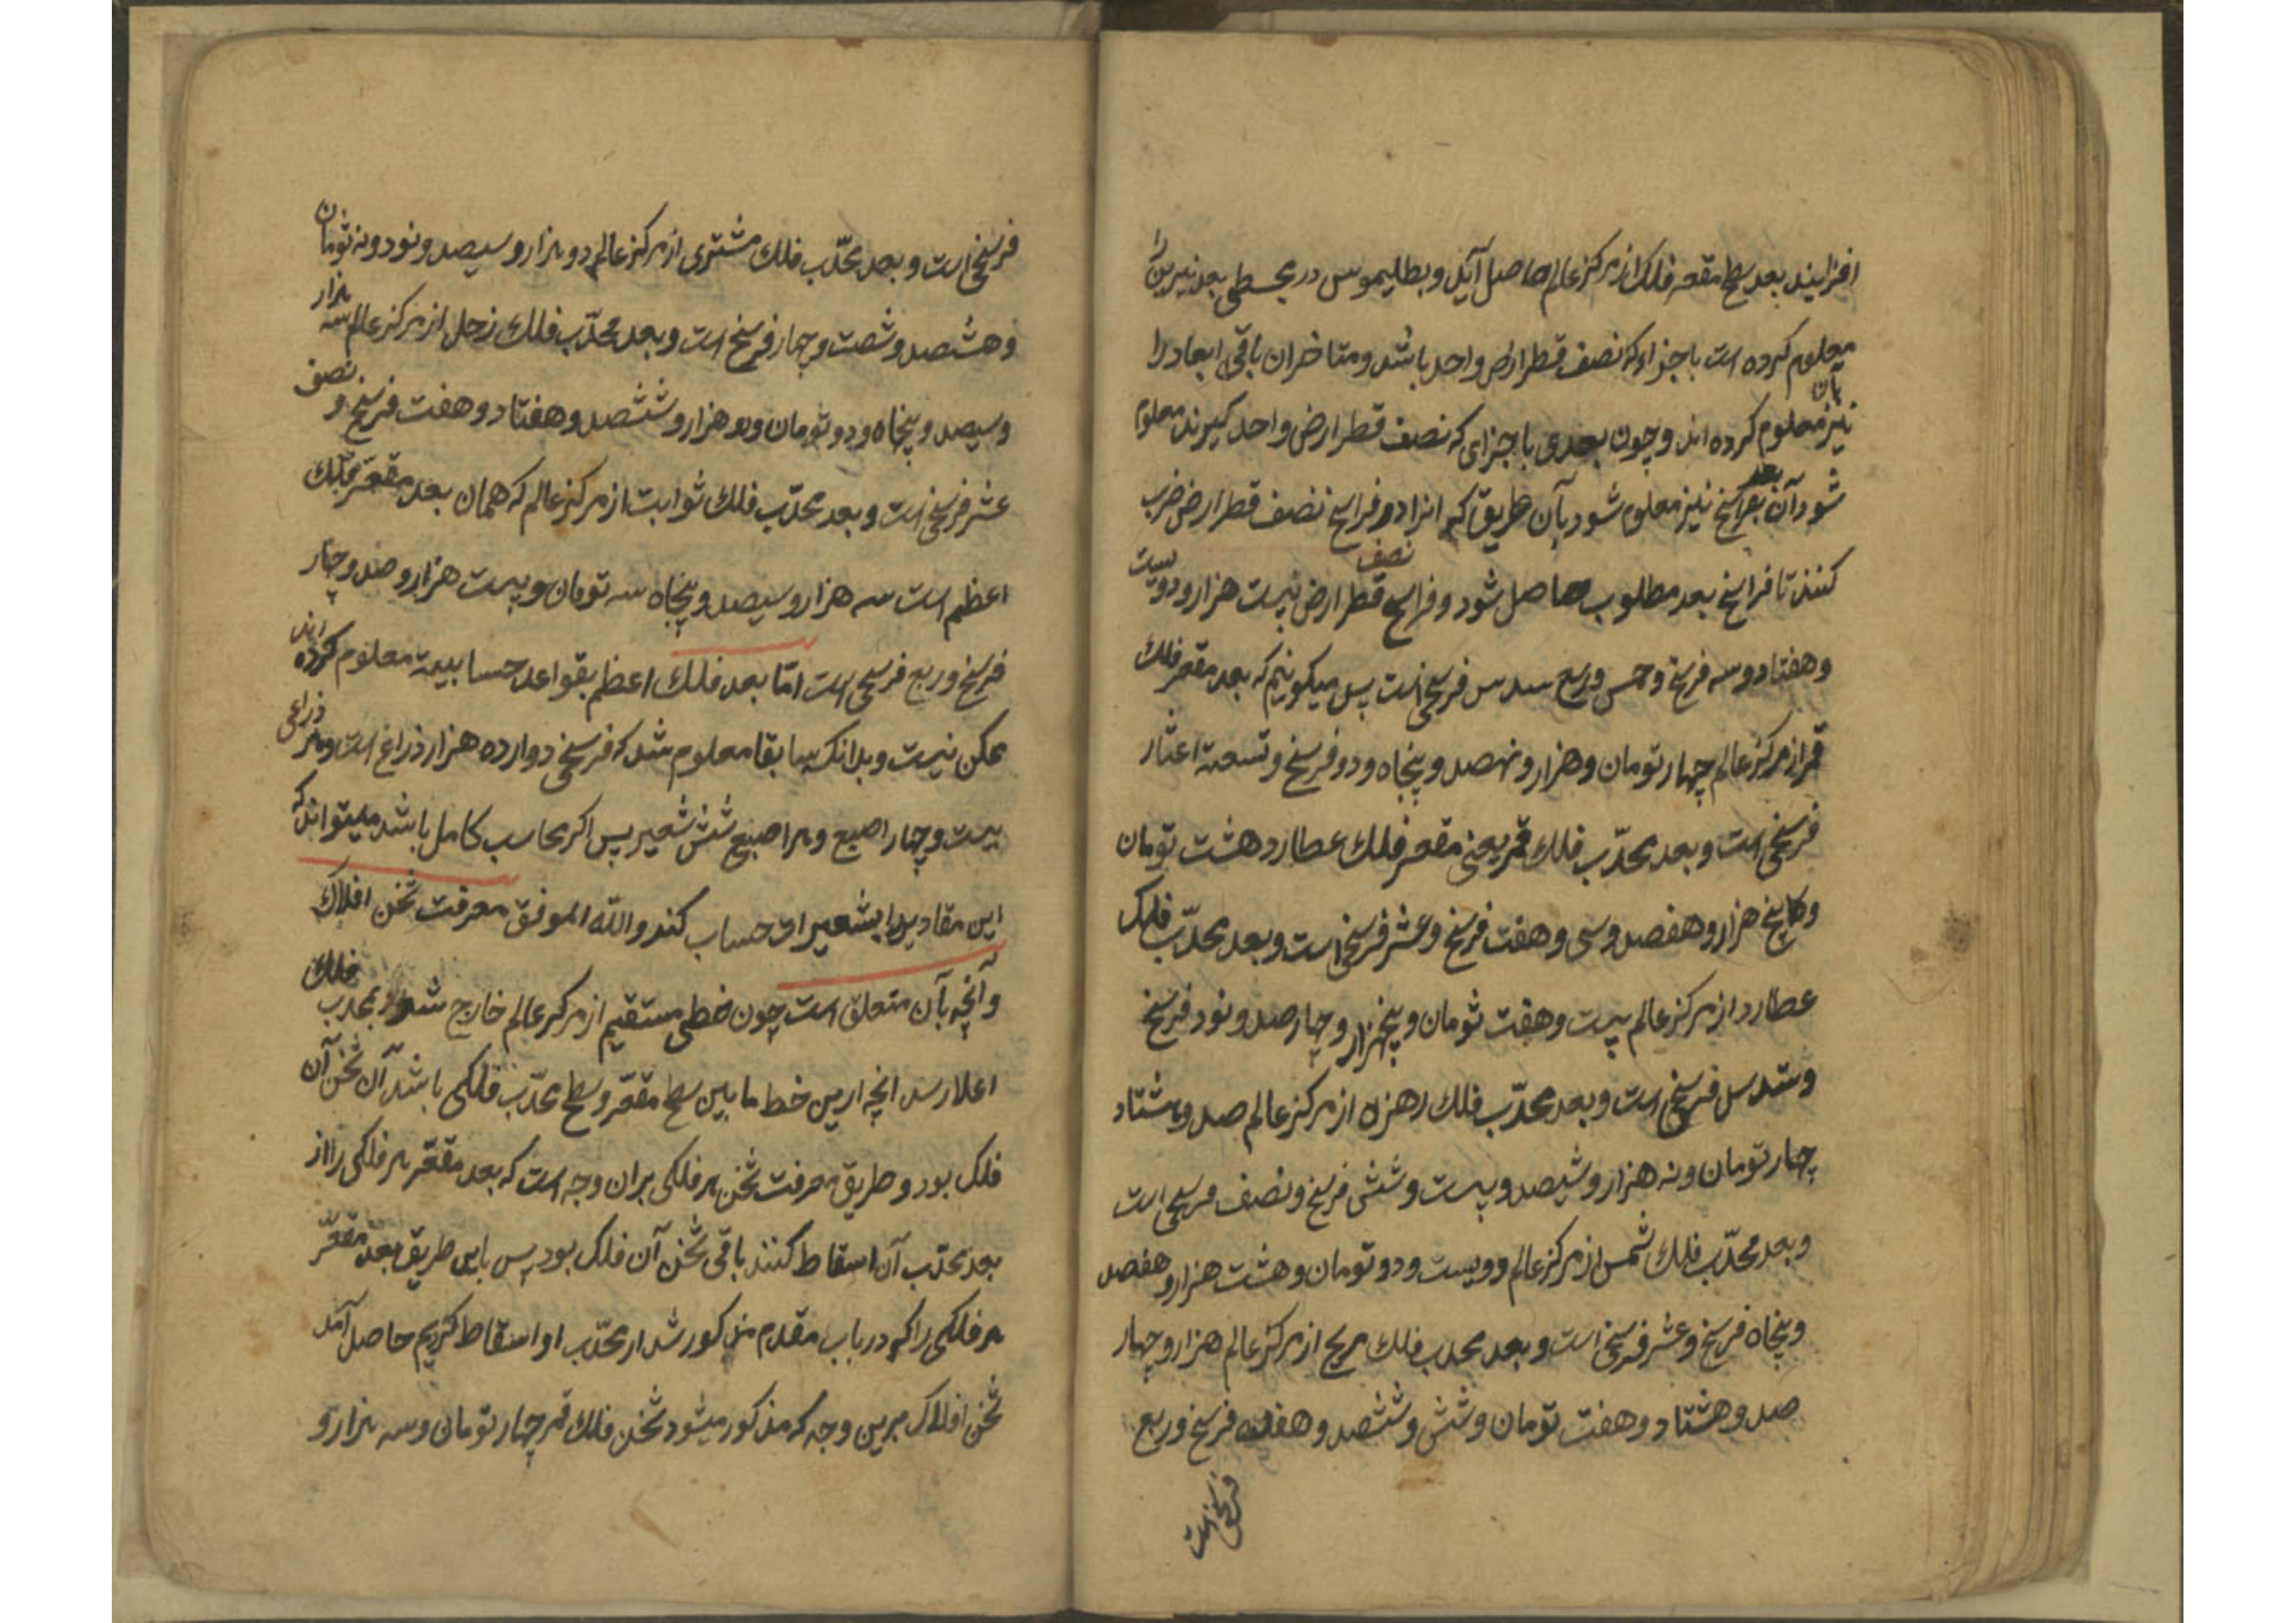 افزایند بعد سطح مقعر فلک از مرکز عالم حاصل آید و بطلیموس در مجسطی بعد نیرین را
معلوم کرده است باجزاء که نصف قطر ارض واحد باشد و متاخران باقی ابعاد را
نیز بآن معلوم کرده اند و چون بعدی باجزای که نصف قطر ارض واحد گیرند معلوم
شود آن بعد بفراسخ نیز معلوم شود بآن طریق که انرا در فراسخ نصف قطر ارض ضرب
کنند تا فراسخ بعد مطلوب حاصل شود و فراسخ نصف قطر ارض بیست هزار و دویست
و هفتاد و سه فرسخ و خمس و ربع سدس فرسخی است پس میکوییم که بعد مقعر فلک
قمر از مرکز عالم چهار تومان و هزار و نهصد و پنجاه و دو فرسخ و تسعة اعشار
فرسخی است و بعد محدّب فلک قمر یعنی مقعر فلک عطارد هشت تومان
و پنج هزار و هفصد و سی و هفت فرسخ و عشر فرسخی است و بعد محدّب فلک
عطارد از مرکز عالم بیست و هفت تومان و پنجهزار و چهار صد و نود فرسخ
و سدس فرسخی است و بعد محدّب فلک زهره از مرکز عالم صد و هشتاد
چهار تومان و نه هزار و شیصد و بیست و شش فرسخ و نصف فرسخی است
و بعد محدّب فلک شمس از مرکز عالم دویست و دو تومان و هشت هزار و هفصد
و پنجاه فرسخ و عشر فرسخی است و بعد محدب فلک مریخ از مرکز عالم هزار و چهار
صد و هشتاد و هفت تومان و شش و ششصد و هفده فرسخ و ربع
فرسخی است
فرسخی است و بعد محدّب فلک مشتری از مرکز عالم دو هزار و سیصد و نود و نه تومان
و هشصد و شصت و چهار فرسخ است و بعد محدّب فلک زحل از مرکز عالم سه هزار
و سیصد و پنجاه و دو تومان و دو هزار و ششصد و هفتاد و هفت فرسخ و نصف
عشر فرسخی است و بعد محدّب فلک ثوابت از مرکز عالم که همان بعد مقعّر فلک
اعظم است سه هزار و سیصد و پنجاه سه تومان و بیست هزار و صد و چهار
فرسخ و ربع فرسخی است امّا بعد فلک اعظم بقواعد حسابیة معلوم کرده اند
ممکن نیست و بدانک سابقا معلوم شد که فرسخی دوازده هزار ذراع است و هر ذراعی
بیست و چهار اصبع و هر اصبع شش شعیر پس اکر محاسب کامل باشد میتواند که
این مقادیر را بشعیرات حساب کند و الله الموفق معرفت ثخن افلاک
و آنچه بآن متعلق است چون خطی مستقیم از مرکز عالم خارج شود بمحدب فلک
اعلا رسد انچه ازین خط ما بین سطح مقعّر و سطح محدّب فلکی باشد آن ثخن آن
فلک بود و طریق معرفت ثخن هر فلکی بران وجه است که بعد مقعّر هر فلکی را از
بعد محدّب آن اسقاط کنند باقی ثخن آن فلک بود پس باین طریق بعد مقعّر
هر فلکی را که در باب مقدم مذکور شد از محدّب او اسقاط کردیم حاصل آمد
ثخن افلاک برین وجه که مذکور میشود ثخن فلک قمر چهار تومان و سه هزار و